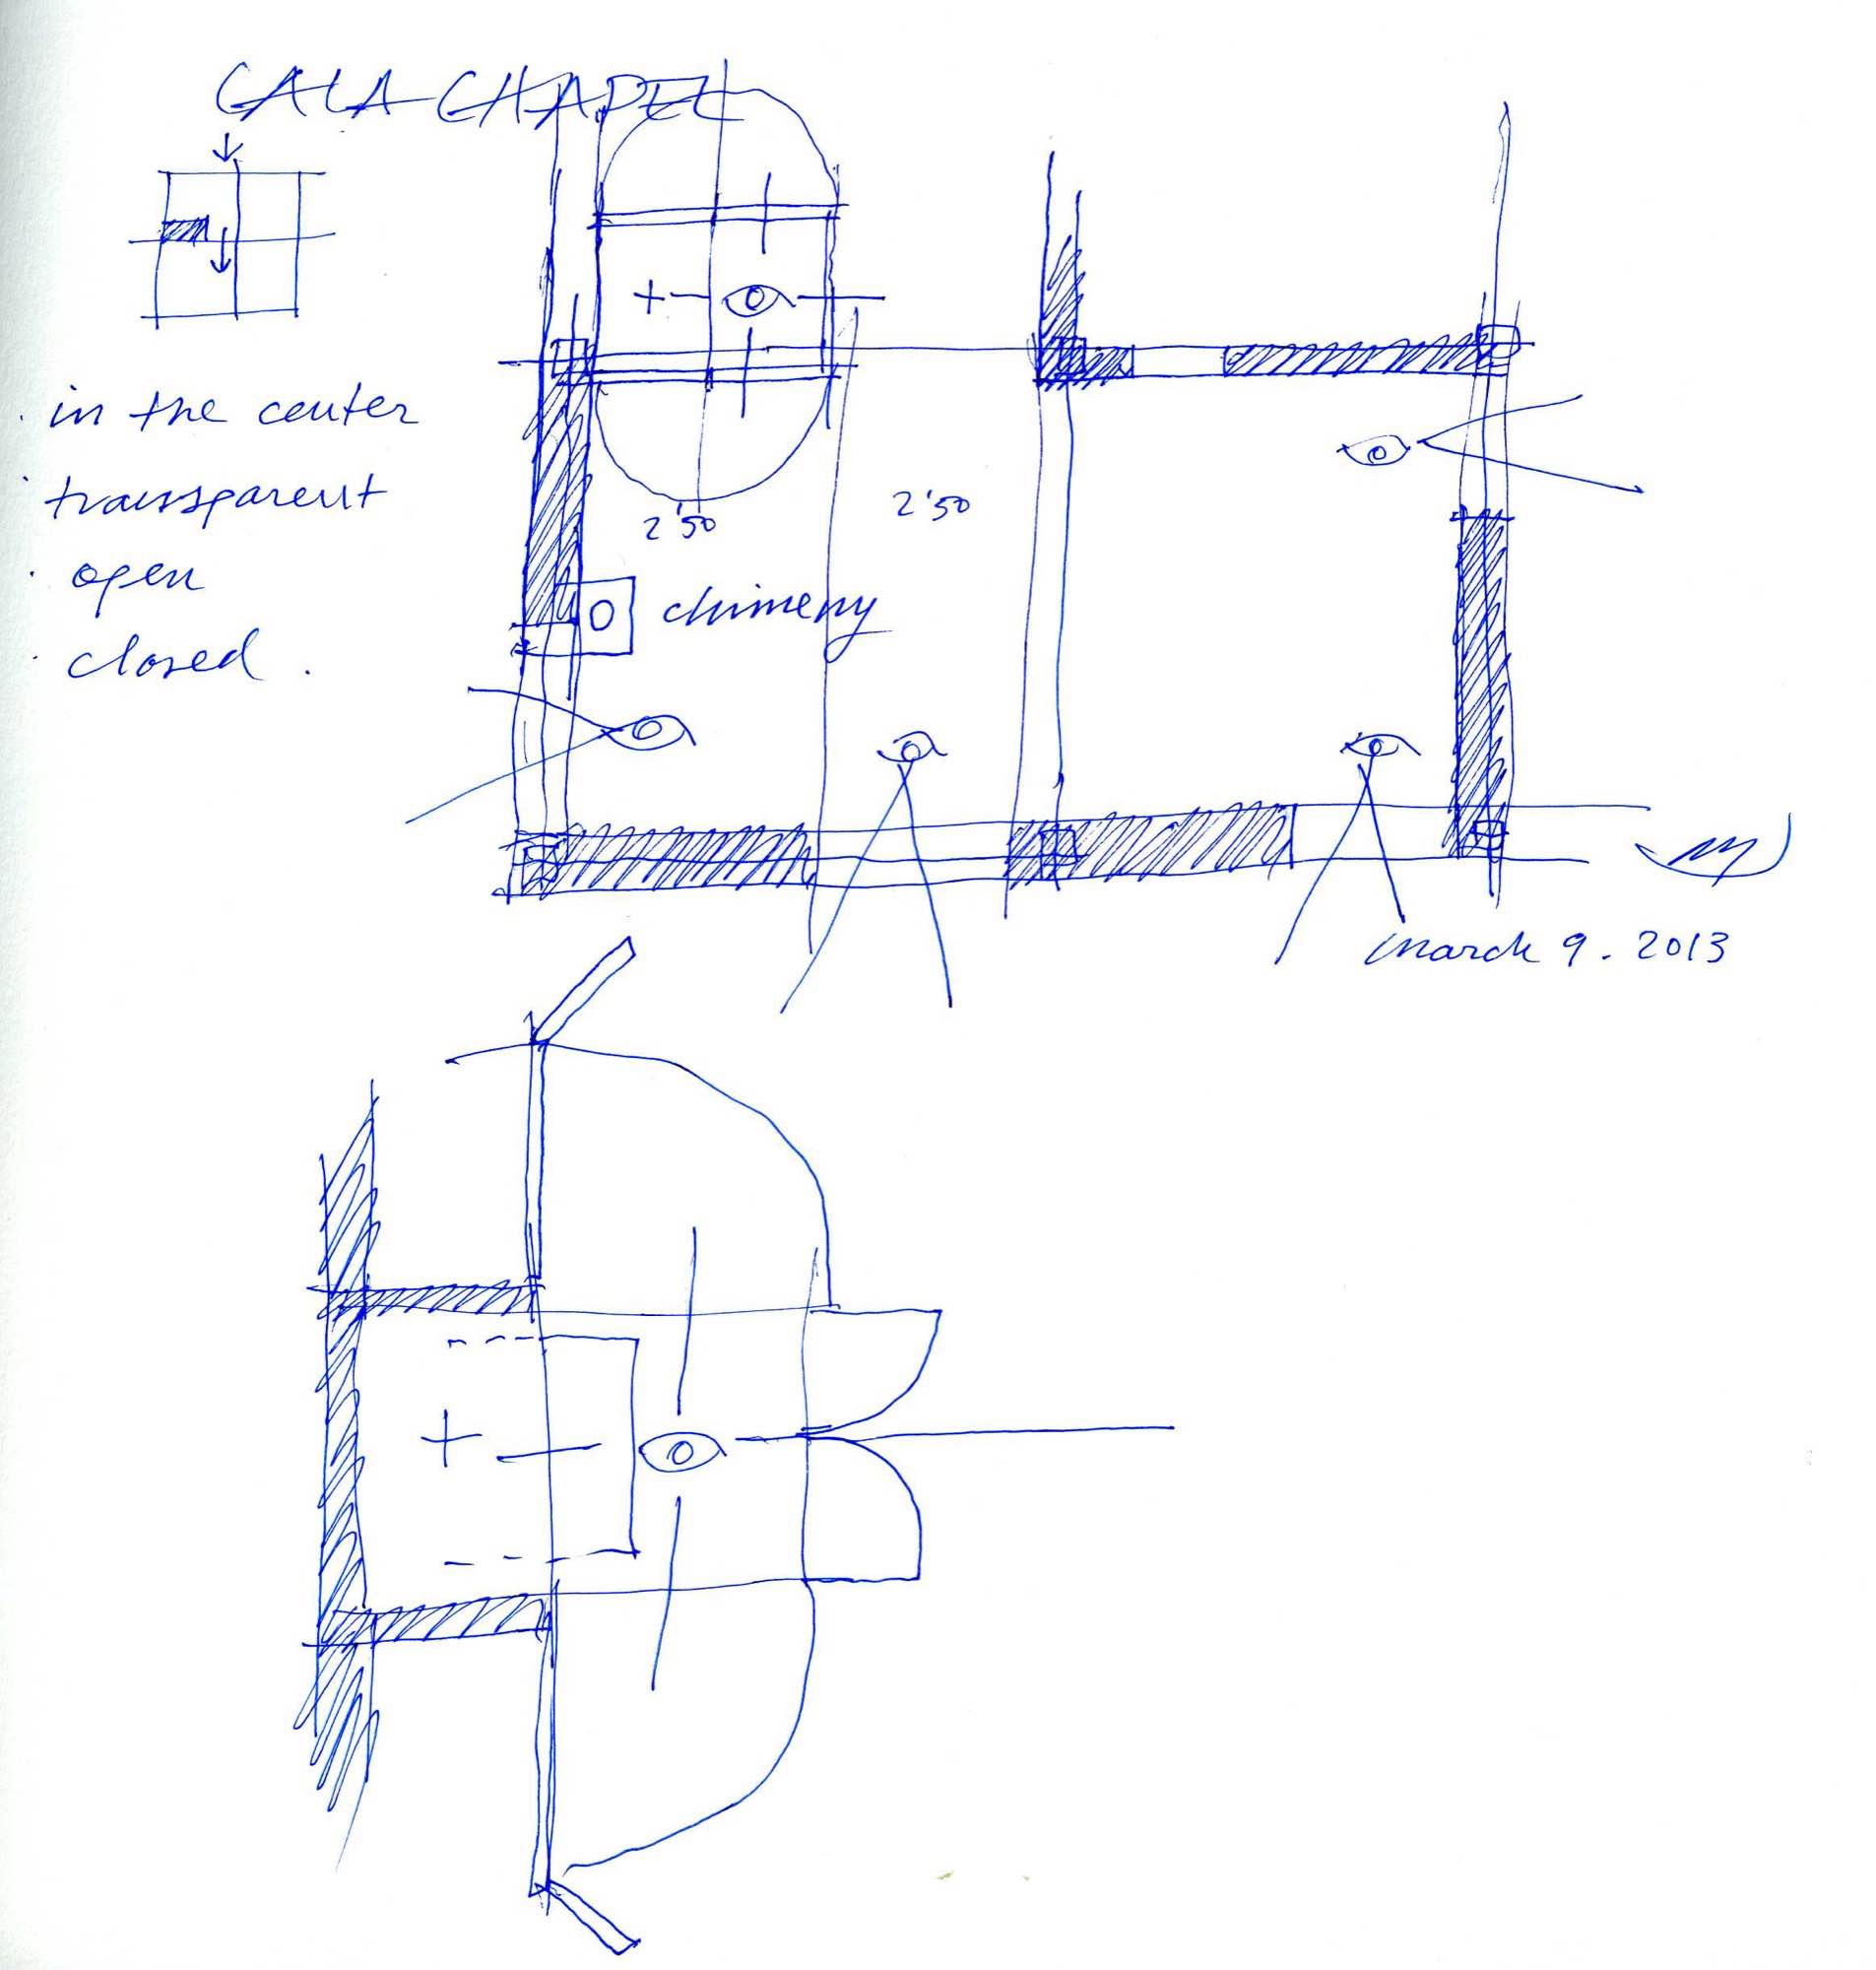 CALA CHAPEL
· in the center
· transparent
· open
· closed.
2'50
2'50
chimeny
march 9. 2013